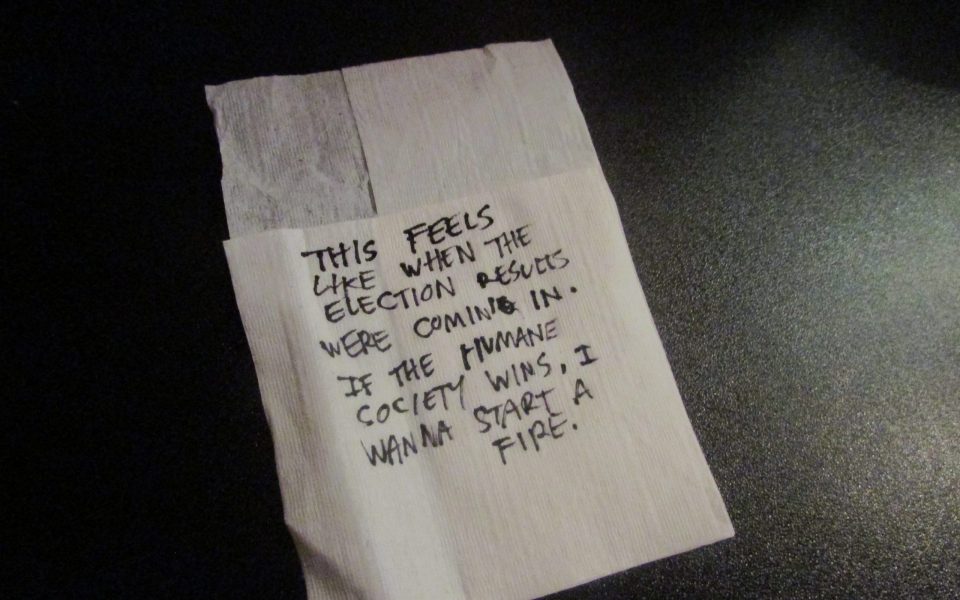 THIS FEELS
LIKE WHEN THE
ELECTION RESULTS
WERE COMING IN.
IF THE HUMANE
SOCIETY WINS, I
WANNA START A
FIRE.